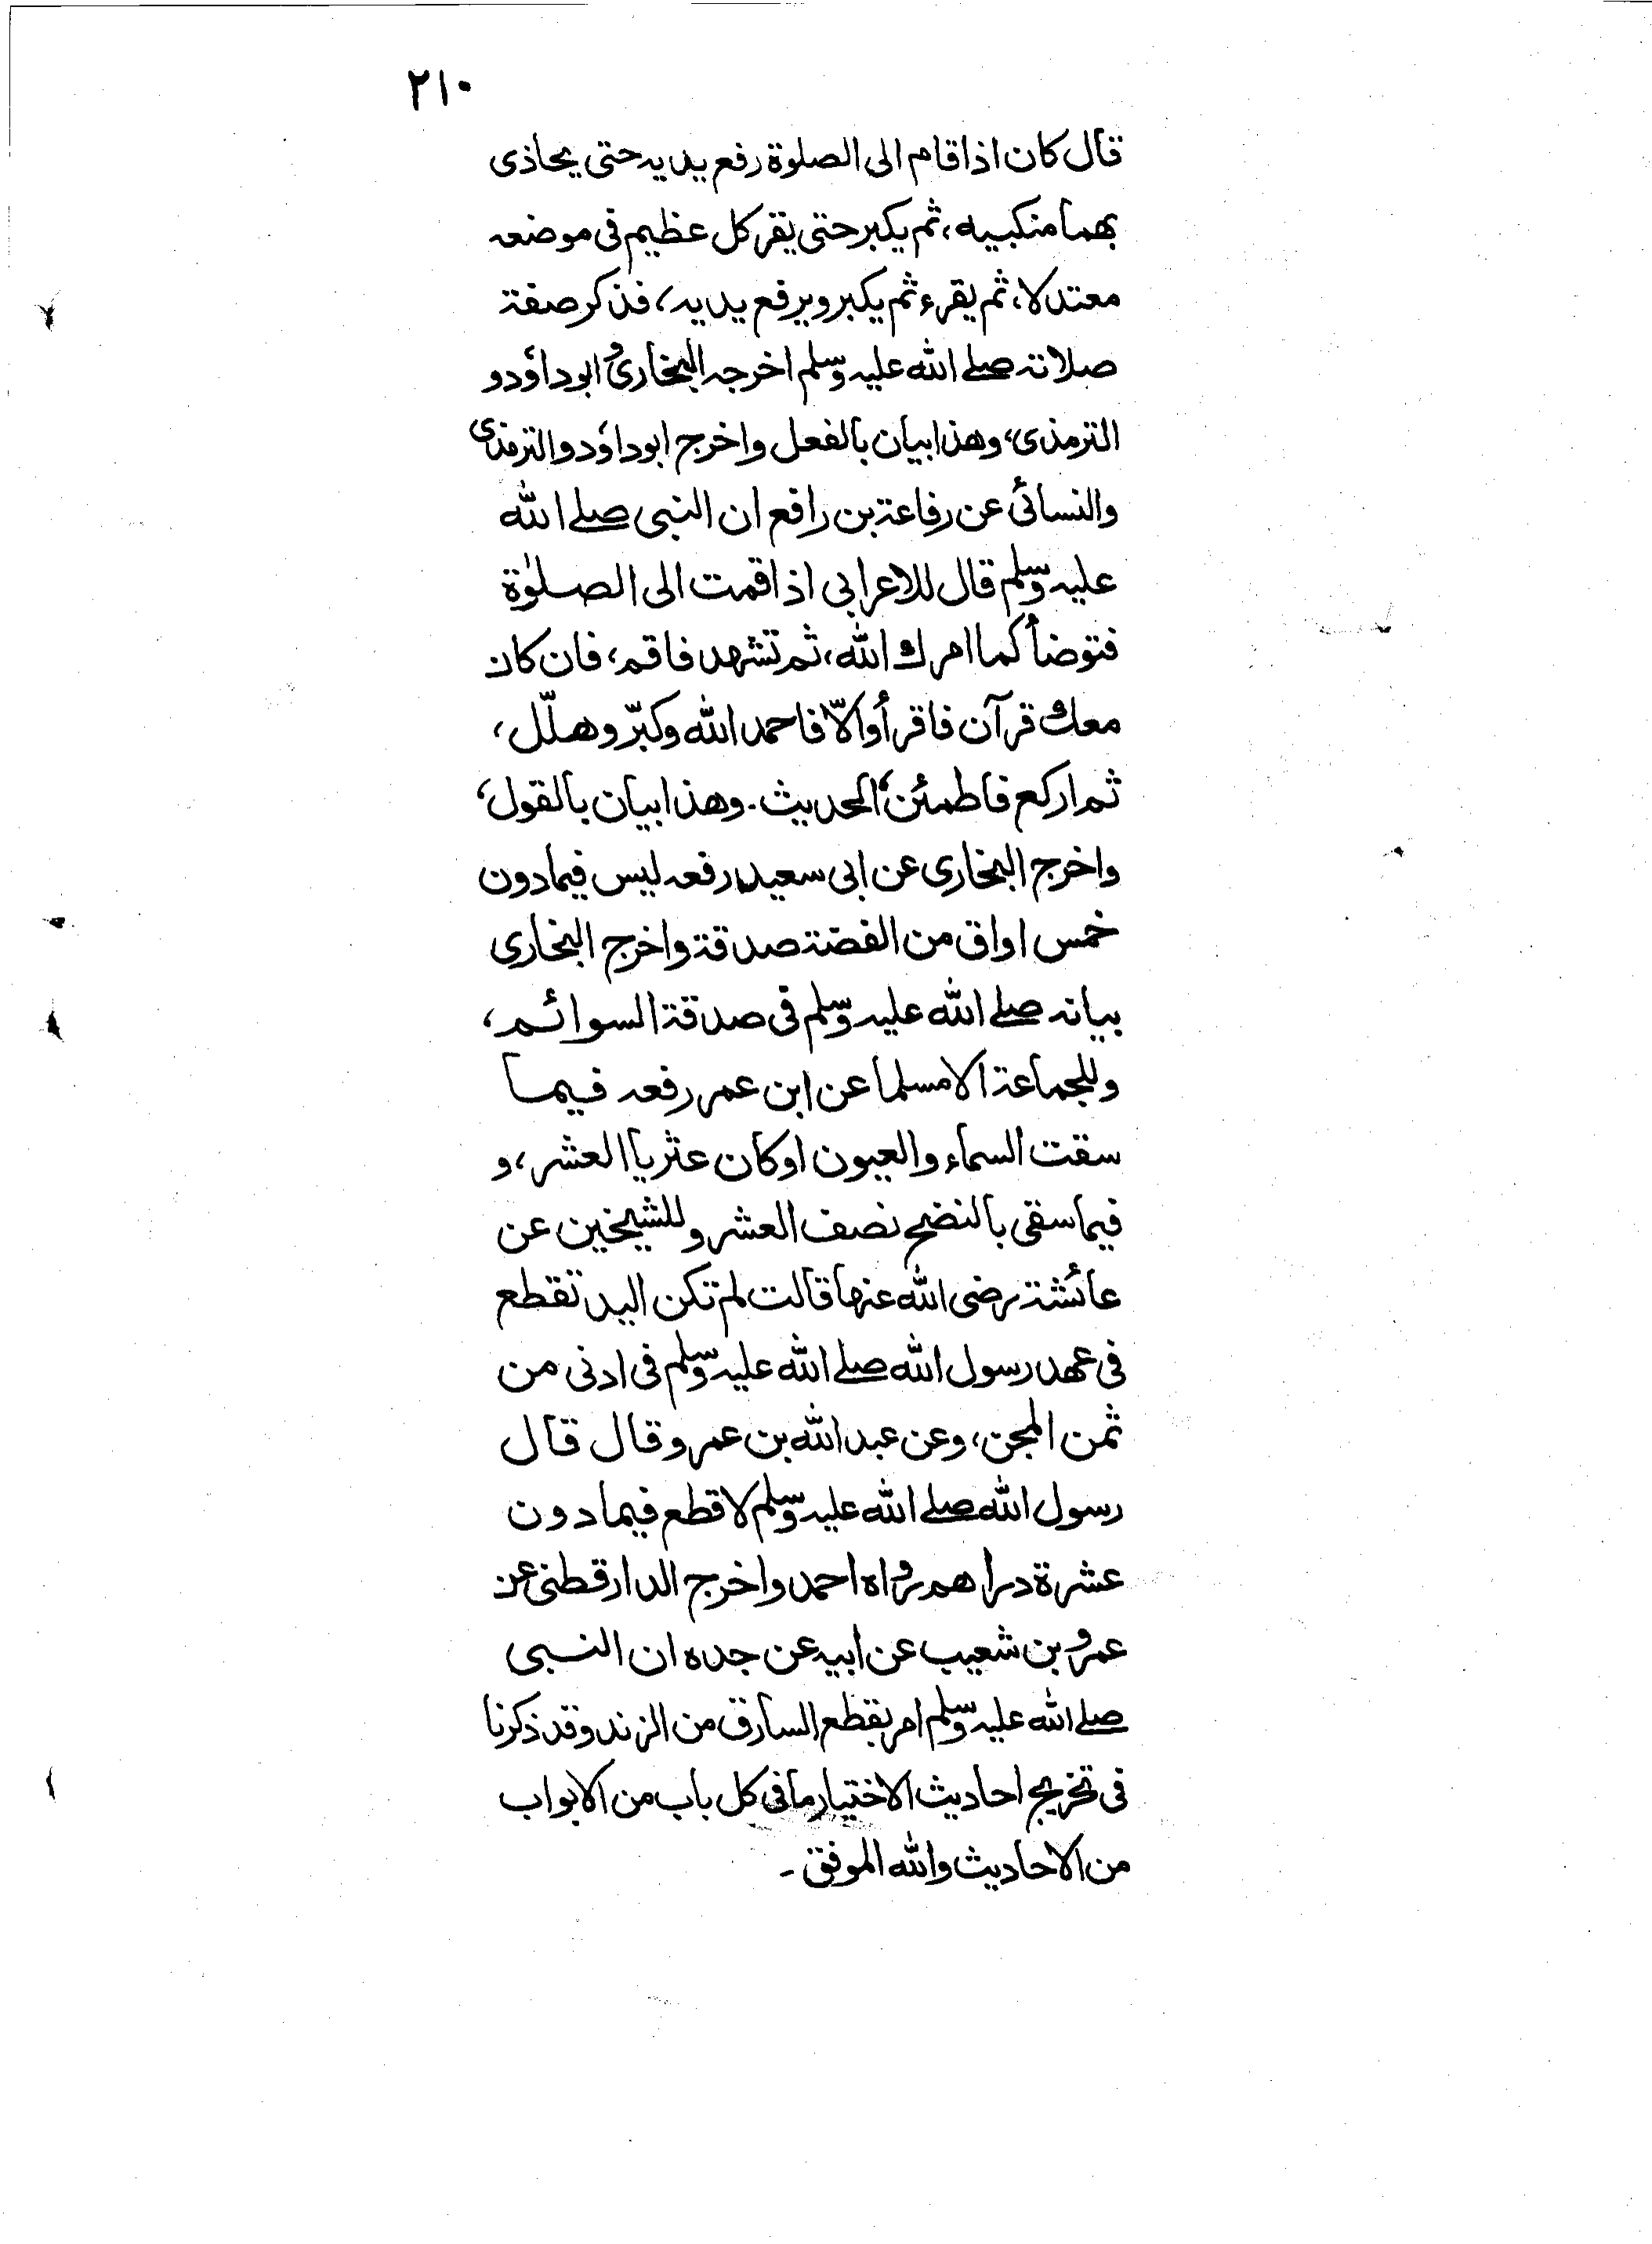 ٢١٠
قال كان اذا قام الى الصلوة رفع يديه حتى يحاذى
بهما منكبيه، ثم يكبر حتى يقر كل عظيم فى موضعه
معتدلا، ثم يقرء ثم يكبر ويرفع يديه، فذكر صفة
صلاته صلے الله عليه وسلم اخرجه البخارى و ابوداؤد و
الترمذى، وهذا بيان بالفعل واخرج ابوداؤد والترمذى
والنسائى عن رفاعة بن رافع ان النبى صلے الله
عليه وسلم قال للاعرابى اذا قمت الى الصلوٰة
فتوضأ كما امرك الله، ثم تشهد فاقم، فان كان
معك قرآن فاقرأ والّا فاحمد الله وكبّر وهلّل،
ثم اركع فاطمئن، الحديث۔ وهذا بيان بالقول،
واخرج البخارى عن ابى سعيد رفعه ليس فيما دون
خمس اواق من الفضة صدقة واخرج البخارى
بيانه صلے الله عليه وسلم فى صدقة السوائم،
وللجماعة الا مسلما عن ابن عمر رفعه فيما
سقت السماء والعيون اوكان عثريا العشر، و
فيما سقى بالنضح نصف العشر وللشيخين عن
عائشة رضى الله عنها قالت لم تكن اليد تقطع
فى عهد رسول الله صلے الله عليه وسلم فى ادنى من
ثمن المجن، وعن عبد الله بن عمرو قال قال
رسول الله صلے الله عليه وسلم لا قطع فيما دون
عشرة دراهم رواه احمد واخرج الدارقطنى عن
عمرو بن شعيب عن ابيه عن جده ان النبى
صلے الله عليه وسلم امر بقطع السارق من الزند وقد ذكرنا
فى تخريج احاديث الاختيار ما فى كل باب من الابواب
من الاحاديث والله الموفق۔